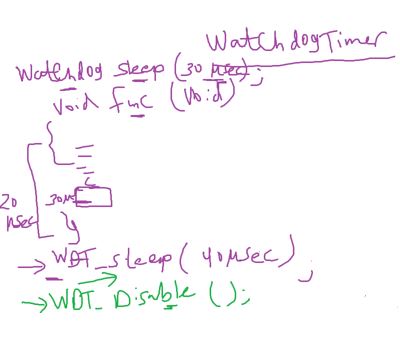 WatchdogTimer
Watchdog sleep (30 μsec);
void func (void)
{
30μs
20
μsec
}
→ WDT_sleep ( 40μsec) ;
→ WDT_Disable ();